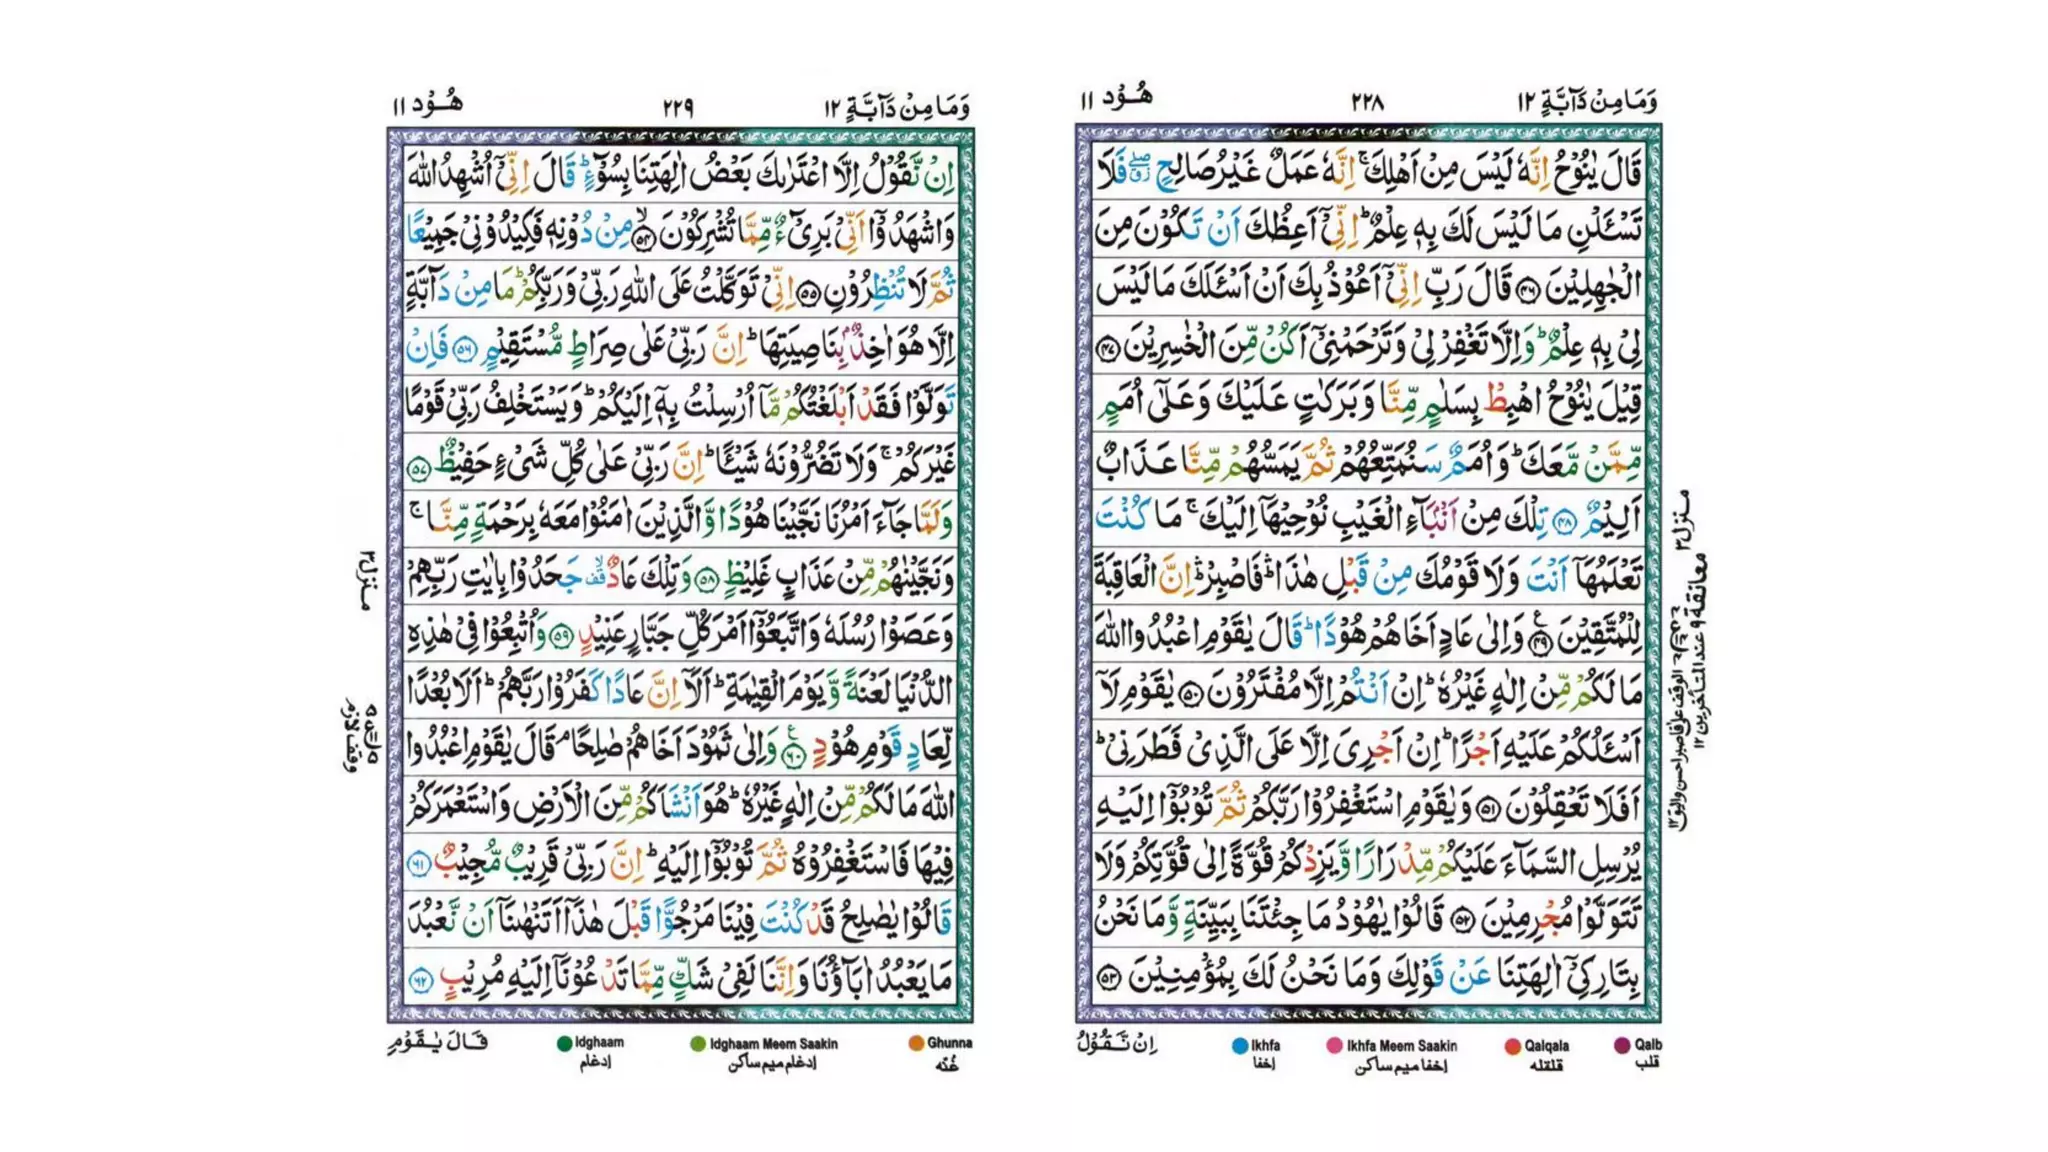 وَمَا مِنْ دَآبَّةٍ ١٢
٢٢٨
هُوْد ١١
قَالَ يٰنُوْحُ اِنَّهٗ لَيْسَ مِنْ اَهْلِكَ ۚ اِنَّهٗ عَمَلٌ غَيْرُ صَالِحٍ ۖ فَلَا
تَسْـَٔلْنِ مَا لَيْسَ لَكَ بِهٖ عِلْمٌ ؕ اِنِّىْۤ اَعِظُكَ اَنْ تَكُوْنَ مِنَ
الْجٰهِلِيْنَ ۝٤٦ قَالَ رَبِّ اِنِّىْۤ اَعُوْذُ بِكَ اَنْ اَسْـَٔلَكَ مَا لَيْسَ
لِىْ بِهٖ عِلْمٌ ؕ وَاِلَّا تَغْفِرْ لِىْ وَتَرْحَمْنِىْۤ اَكُنْ مِّنَ الْخٰسِرِيْنَ ۝٤٧
قِيْلَ يٰنُوْحُ اهْبِطْ بِسَلٰمٍ مِّنَّا وَبَرَكٰتٍ عَلَيْكَ وَعَلٰٓى اُمَمٍ
مِّمَّنْ مَّعَكَ ؕ وَاُمَمٌ سَنُمَتِّعُهُمْ ثُمَّ يَمَسُّهُمْ مِّنَّا عَذَابٌ
اَلِيْمٌ ۝٤٨ تِلْكَ مِنْ اَنْۢبَآءِ الْغَيْبِ نُوْحِيْهَاۤ اِلَيْكَ ۚ مَا كُنْتَ
تَعْلَمُهَاۤ اَنْتَ وَلَا قَوْمُكَ مِنْ قَبْلِ هٰذَا ۛؕ فَاصْبِرْ ۛؕ اِنَّ الْعَاقِبَةَ
لِلْمُتَّقِيْنَ ۝٤٩ وَاِلٰى عَادٍ اَخَاهُمْ هُوْدًا ؕ قَالَ يٰقَوْمِ اعْبُدُوا اللّٰهَ
مَا لَكُمْ مِّنْ اِلٰهٍ غَيْرُهٗ ؕ اِنْ اَنْتُمْ اِلَّا مُفْتَرُوْنَ ۝٥٠ يٰقَوْمِ لَاۤ
اَسْـَٔلُكُمْ عَلَيْهِ اَجْرًا ؕ اِنْ اَجْرِىَ اِلَّا عَلَى الَّذِىْ فَطَرَنِىْ ؕ
اَفَلَا تَعْقِلُوْنَ ۝٥١ وَيٰقَوْمِ اسْتَغْفِرُوْا رَبَّكُمْ ثُمَّ تُوْبُوْۤا اِلَيْهِ
يُرْسِلِ السَّمَآءَ عَلَيْكُمْ مِّدْرَارًا وَّيَزِدْكُمْ قُوَّةً اِلٰى قُوَّتِكُمْ وَلَا
تَتَوَلَّوْا مُجْرِمِيْنَ ۝٥٢ قَالُوْا يٰهُوْدُ مَا جِئْتَنَا بِبَيِّنَةٍ وَّمَا نَحْنُ
بِتَارِكِىْۤ اٰلِهَتِنَا عَنْ قَوْلِكَ وَمَا نَحْنُ لَكَ بِمُؤْمِنِيْنَ ۝٥٣
منزل ٣
معانقة ٩ عند المتأخرين ١٢
اِنْ نَّقُوْلُ
Ikhfa
اخفا
Ikhfa Meem Saakin
اخفا میم ساکن
Qalqala
قلقله
Qalb
قلب
وَمَا مِنْ دَآبَّةٍ ١٢
٢٢٩
هُوْد ١١
اِنْ نَّقُوْلُ اِلَّا اعْتَرٰىكَ بَعْضُ اٰلِهَتِنَا بِسُوْٓءٍ ؕ قَالَ اِنِّىْۤ اُشْهِدُ اللّٰهَ
وَاشْهَدُوْۤا اَنِّىْ بَرِىْٓءٌ مِّمَّا تُشْرِكُوْنَ ۝٥٤ۙ مِنْ دُوْنِهٖ فَكِيْدُوْنِىْ جَمِيْعًا
ثُمَّ لَا تُنْظِرُوْنِ ۝٥٥ اِنِّىْ تَوَكَّلْتُ عَلَى اللّٰهِ رَبِّىْ وَرَبِّكُمْ ؕ مَا مِنْ دَآبَّةٍ
اِلَّا هُوَ اٰخِذٌۢ بِنَاصِيَتِهَا ؕ اِنَّ رَبِّىْ عَلٰى صِرَاطٍ مُّسْتَقِيْمٍ ۝٥٦ فَاِنْ
تَوَلَّوْا فَقَدْ اَبْلَغْتُكُمْ مَّاۤ اُرْسِلْتُ بِهٖۤ اِلَيْكُمْ ؕ وَيَسْتَخْلِفُ رَبِّىْ قَوْمًا
غَيْرَكُمْ ۚ وَلَا تَضُرُّوْنَهٗ شَيْـًٔا ؕ اِنَّ رَبِّىْ عَلٰى كُلِّ شَىْءٍ حَفِيْظٌ ۝٥٧
وَلَمَّا جَآءَ اَمْرُنَا نَجَّيْنَا هُوْدًا وَّالَّذِيْنَ اٰمَنُوْا مَعَهٗ بِرَحْمَةٍ مِّنَّا ۚ
وَنَجَّيْنٰهُمْ مِّنْ عَذَابٍ غَلِيْظٍ ۝٥٨ وَتِلْكَ عَادٌ ۙقف جَحَدُوْا بِاٰيٰتِ رَبِّهِمْ
وَعَصَوْا رُسُلَهٗ وَاتَّبَعُوْۤا اَمْرَ كُلِّ جَبَّارٍ عَنِيْدٍ ۝٥٩ وَاُتْبِعُوْا فِىْ هٰذِهِ
الدُّنْيَا لَعْنَةً وَّيَوْمَ الْقِيٰمَةِ ؕ اَلَاۤ اِنَّ عَادًا كَفَرُوْا رَبَّهُمْ ؕ اَلَا بُعْدًا
لِّعَادٍ قَوْمِ هُوْدٍ ۝٦٠ وَاِلٰى ثَمُوْدَ اَخَاهُمْ صٰلِحًا ۘ قَالَ يٰقَوْمِ اعْبُدُوا
اللّٰهَ مَا لَكُمْ مِّنْ اِلٰهٍ غَيْرُهٗ ؕ هُوَ اَنْشَاَكُمْ مِّنَ الْاَرْضِ وَاسْتَعْمَرَكُمْ
فِيْهَا فَاسْتَغْفِرُوْهُ ثُمَّ تُوْبُوْۤا اِلَيْهِ ؕ اِنَّ رَبِّىْ قَرِيْبٌ مُّجِيْبٌ ۝٦١
قَالُوْا يٰصٰلِحُ قَدْ كُنْتَ فِيْنَا مَرْجُوًّا قَبْلَ هٰذَاۤ اَتَنْهٰىنَاۤ اَنْ نَّعْبُدَ
مَا يَعْبُدُ اٰبَآؤُنَا وَاِنَّنَا لَفِىْ شَكٍّ مِّمَّا تَدْعُوْنَاۤ اِلَيْهِ مُرِيْبٍ ۝٦٢
منزل ٣
وقف لازم
قَالَ يٰقَوْمِ
Idghaam
إدغام
Idghaam Meem Saakin
إدغام میم ساکن
Ghunna
غُنّه